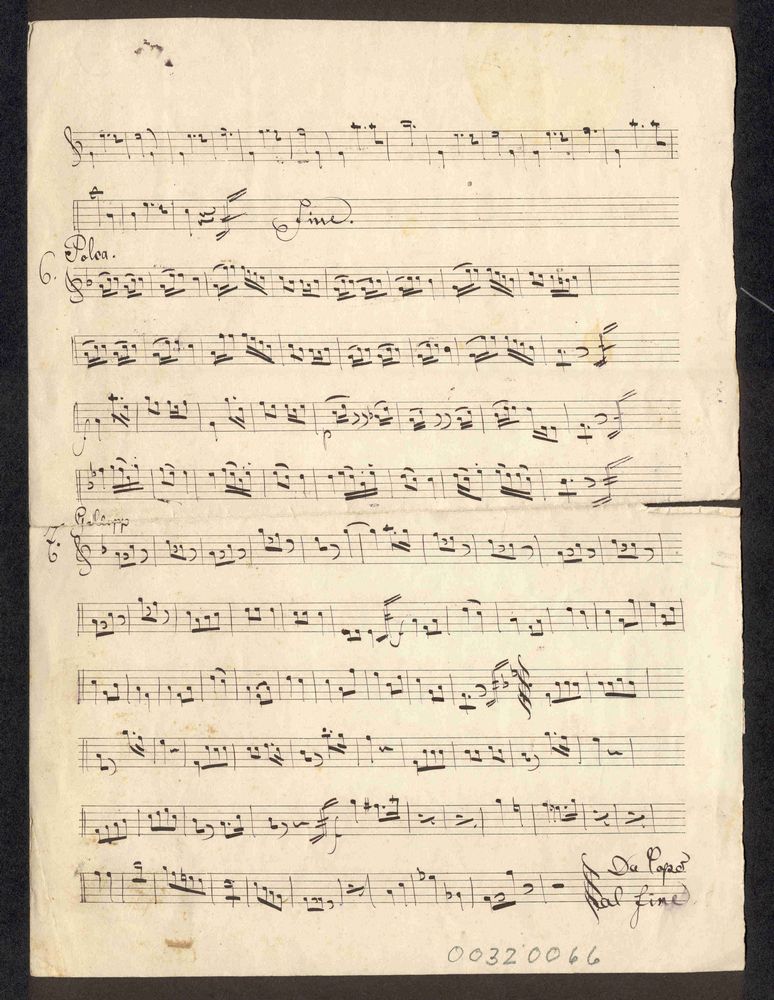 Fine.
6. Polca.
7. Gallopp
Da Capo
al fine
00320066